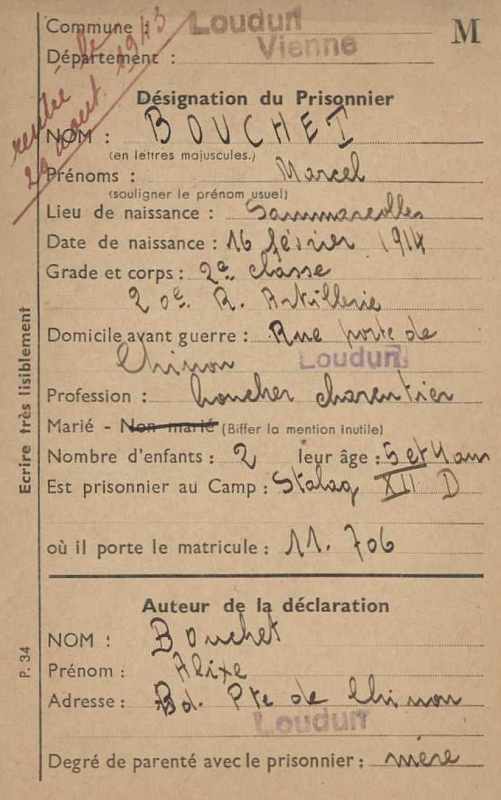 Commune : Loudun
M
Vienne
Département :
rentré le
29 août 1943
Désignation du Prisonnier
NOM : BOUCHET
(en lettres majuscules.)
Prénoms : Marcel
(souligner le prénom usuel)
Lieu de naissance : Sammarcolles
Date de naissance : 16 février 1914
Grade et corps : 2e classe
20e. R. Artillerie
Domicile avant guerre : Rue porte de
Chinon Loudun
Profession : boucher charcutier
Marié - Non marié (Biffer la mention inutile)
Nombre d'enfants : 2 leur âge : 5 et 4 ans
Est prisonnier au Camp : Stalag XII D
où il porte le matricule : 11.706
Auteur de la déclaration
NOM : Bouchet
Prénom : Alixe
Adresse : Bd. Pte de Chinon
Loudun
Degré de parenté avec le prisonnier : mère
Ecrire très lisiblement
P. 34